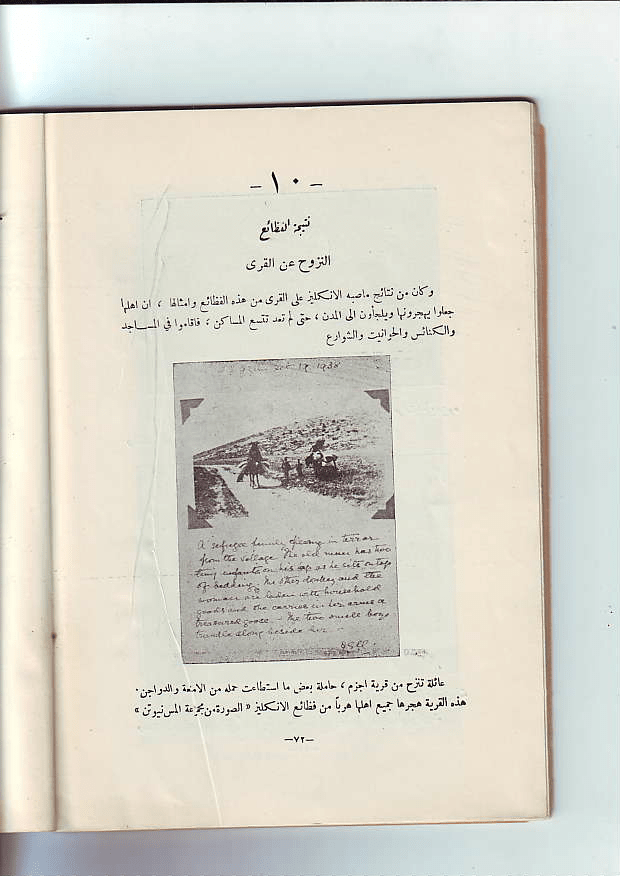 - ١٠ -
نتيجة الفظائع
النزوح عن القرى
وكان من نتائج ماصبه الانكليز على القرى من هذه الفظائع وامثالها ، ان اهلها
جعلوا يهجرونها ويلجأون الى المدن ، حتى لم تعد تتسع المساكن ، فاقاموا في المساجد
والكنائس والحوانيت والشوارع
Oct 19 1938
A refugee family fleeing in terror
from the village. The old man has two
tiny infants on his lap as he sits on top
of bedding. The other donkey and the
woman are laden with household
goods and she carries in her arms a
treasured goose. The two small boys
trundle along beside her.
عائلة تنزح من قرية اجزم ، حاملة بعض ما استطاعت حمله من الامتعة والدواجن .
هذه القرية هجرها جميع اهلها هرباً من فظائع الانكليز « الصورة من مجموعة المس نيوتن »
-٧٢-